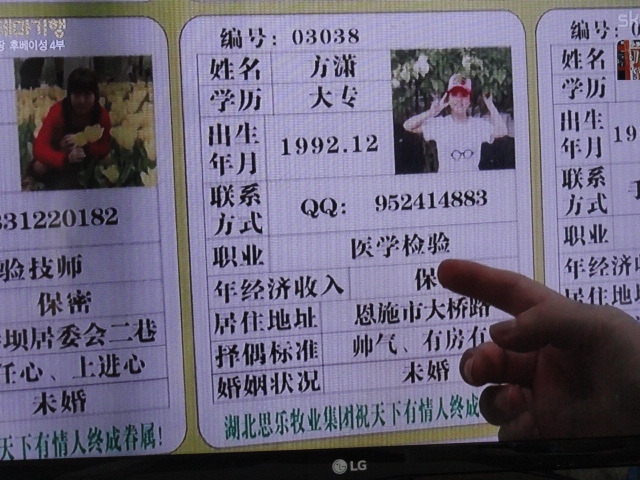 테마기행
후베이성 4부
sk
331220182
验技师
保密
坝居委会二巷
任心、上进心
未婚
天下有情人终成眷属!
编号: 03038
姓名 方潇
学历 大专
出生年月 1992.12
联系方式 QQ: 952414883
职业 医学检验
年经济收入 保
居住地址 恩施市大桥路
择偶标准 帅气、有房有
婚姻状况 未婚
湖北思乐牧业集团祝天下有情人终成
编号:
姓名
学历
出生年月 19
联系方式
职业
年经济收入
居住地址
择偶标准
婚姻
LG